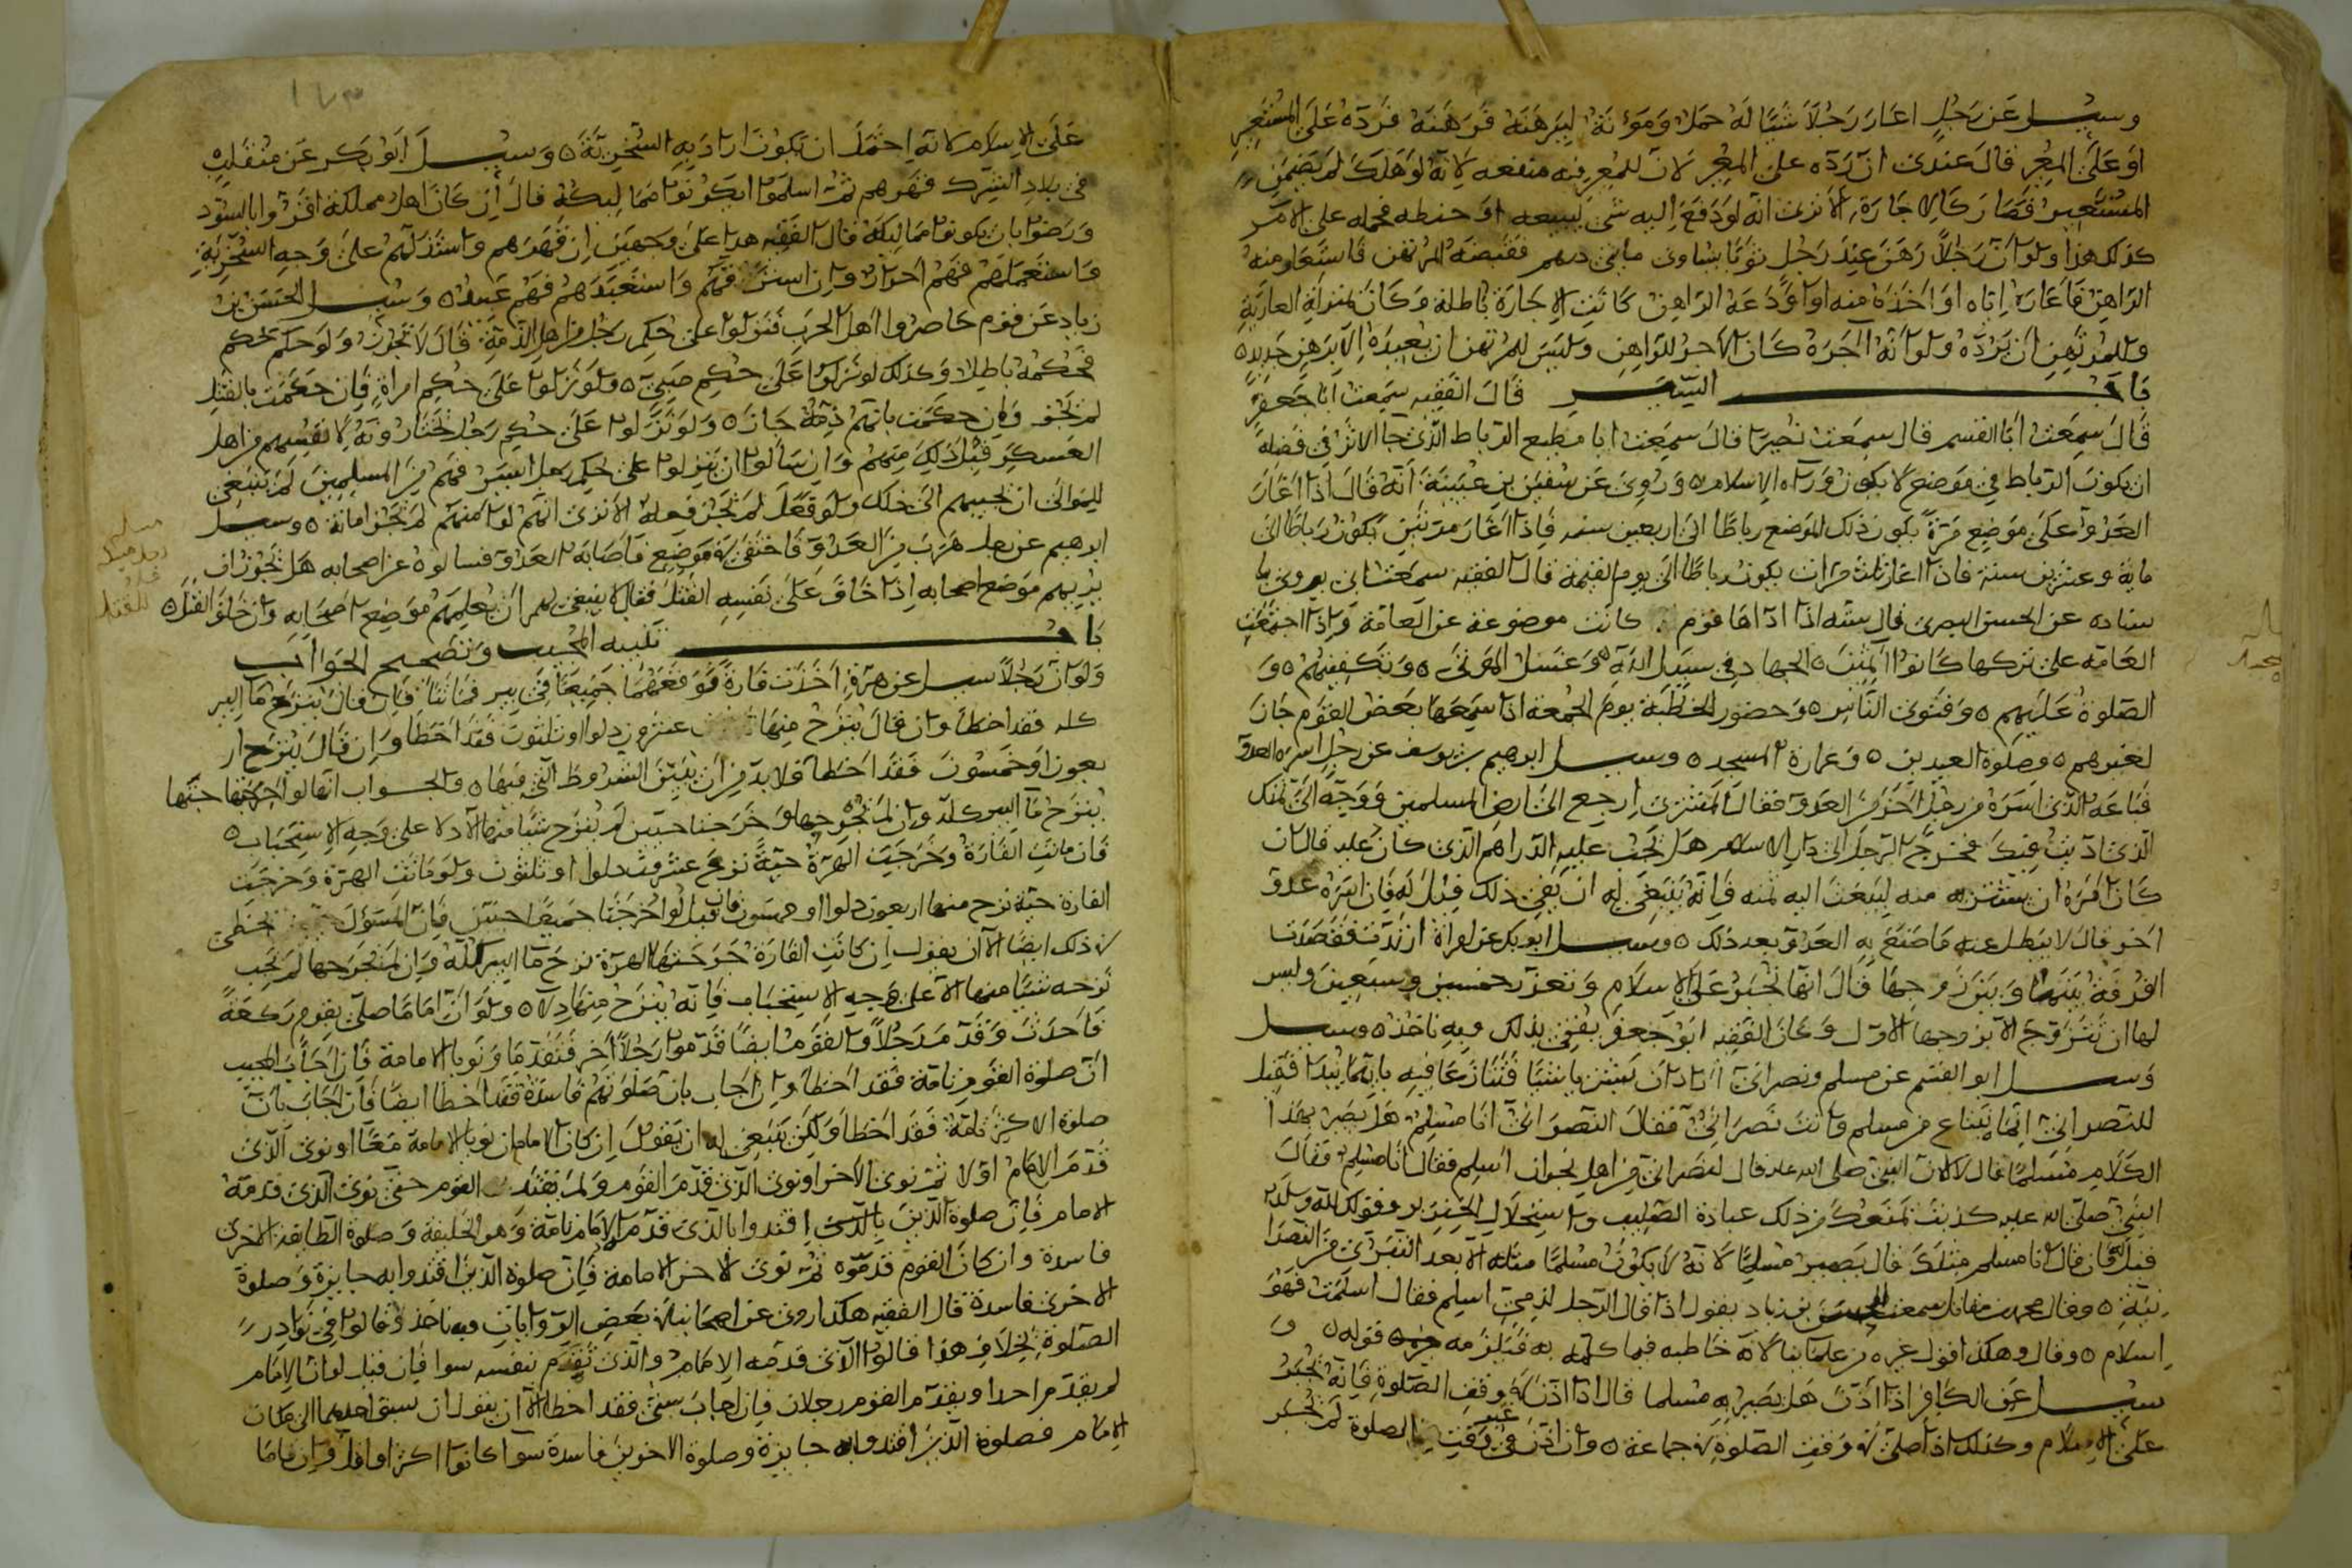 وسئل عن رجل اعار رجلا شيئا له حمل ومؤنة ليرهنه فرهنه فرده على المستعير
او على المعير قال عندى ان رده على المعير لان للمعير فيه منفعه لانه لو هلك لم يضمن
المستعير فصار كالاجارة الا ترى انه لو دفع اليه شى ليبيعه او حنطه فحمله على الامر
كذلك هذا ولو ان رجلا رهن عند رجل ثوبا يساوى مايتى درهم فقبضه المرتهن فاستعار منه
الراهن فاعاره اياه او اخذه منه او اودعه الراهن كانت الاجارة باطلة وكان بمنزلة العارية
وللمرتهن ان يرده ولو انه اجره كان الاجر للراهن وليس للمرتهن ان يعيده الا برهن جديد
باب السير قال الفقيه سمعت ابا جعفر
قال سمعت ابا القسم قال سمعت نصيرا قال سمعت ابا مطيع الرباط الذى جا الاثر فى فضله
ان يكون الرباط فى موضع لا يكون وراه الاسلام وروى عن سفين بن عيينة انه قال اذا اغار
العدو على موضع مرة يكون ذلك الموضع رباطا الى اربعين سنه فاذا اغار مرتين يكون رباطا الى
ماية وعشرين سنة فاذا اغار ثلث مرات يكون رباطا الى يوم القيمة قال الفقيه سمعت ابى يروى با
سناده عن الحسن البصرى قال سته اذا اداها قوم كانت موضوعة عن العامة واذا اجتمعت
العامه على تركها كانوا اثمين الجهاد فى سبيل الله وغسل الموتى وتكفينهم و
الصلوة عليهم وفتوى الناس وحضور الخطبة يوم الجمعة اذا سمعها بعض القوم جاز
لغيرهم وصلوة العيدين وعمارة المسجد وسئل ابرهيم بن يوسف عن رجل اسره العدو
فباعه الذى اسره من رجل اخر من العدو فقال المشترى ارجع الى ارض المسلمين ووجه الى ثمنك
الذى اديت فيك فخرج الرجل الى دار الاسلام هل تجب عليه الدراهم الذى كان عليه قال ان
كان امره ان يشتريه منه ليبعث اليه ثمنه فانه ينبغى له ان يفى ذلك قيل له فان اسره عدو
اخر قال لا يبطل عنه ما صنع به العدو بعد ذلك وسئل ابو بكر عن امراة ارتدت فقصدت
الفرقة بينها وبين زوجها قال انها تجبر على الاسلام وتعزر خمسين وسبعين وليس
لها ان تتزوج الا بزوجها الاول وكان الفقيه ابو جعفر يفتى بذلك وبه ناخذ وسئل
وسئل ابو القسم عن مسلم ونصرانى ارادا ان يشتريا شيئا فتنازعا فيه بايهما يبدا فقيل
للنصرانى انما يبتاع من مسلم وانت نصرانى فقال النصرانى انا مسلم هل يصير بهذا
الكلام مسلما قال لا لان النبى صلى الله عليه قال لنصرانى من اهل نجران اسلم فقال انا مسلم فقال
النبى صلى الله عليه كذبت تمنعك من ذلك عبادة الصليب واستحلال الخنزير وقولك لله ولد
قيل فان قال انا مسلم مثلك قال يصير مسلما لانه لا يكون مسلما مثله الا بعد التبرى من النصرا
نية وقال محمد بن مقاتل سمعت الحسن بن زياد يقول اذا قال الرجل لذمى اسلم فقال اسلمت فهو
اسلام وقال وهكذا اقول غيره من علمائنا لانه خاطبه فيما كلمه به فيلزمه قوله و
سئل عن الكافر اذا اذن هل يصير به مسلما قال اذا اذن فى وقت الصلوة فانه يجبر
على الاسلام وكذلك اذا صلى فى وقت الصلوة فى جماعة وان اذن فى غير وقت الصلوة لم يجبر
على الاسلام لانه احتمل ان يكون اراد به السخرية وسئل ابو بكر عن متغلب
فى بلاد الشرك فقهرهم ثم اسلموا ايكونوا مماليكه قال ان كان اهل مملكته اقروا بالسؤدد
ورضوا بان يكونوا مماليكه قال الفقيه هذا على وجهين ان قهرهم واستذلهم على وجه السخرية
واستعملهم فهم احرار وان استرقهم واستعبدهم فهم عبيد وسئل الحسن بن
زياد عن قوم حاصروا اهل الحرب فنزلوا على حكم رجل من اهل الذمة قال لا يجوز ولو حكم بحكم
فحكمه باطلا وكذلك لو نزلوا على حكم صبى ولو نزلوا على حكم امراة فان حكمت بالقتل
لم يجز وان حكمت بانهم ذمة جاز ولو نزلوا على حكم رجل يختارونه لانفسهم من اهل
العسكر قبل ذلك منهم وان سالوا ان ينزلوا على حكم رجل اسير فيهم من المسلمين لم ينبغى
للوالى ان يجيبهم الى ذلك ولو فعل لم يجز فعله الا ترى انهم لو امنهم لم تجز امانه وسئل
ابرهيم عن رجل هرب من العدو فاختفى فى موضع فاصابه العدو فسالوه عن اصحابه هل يجوز ان
يريهم موضع اصحابه اذا خاف على نفسه القتل فقال لا ينبغى له ان يعلمهم موضع اصحابه وان خاف القتل
باب تنبيه المجيب وتصحيح الجواب
ولو ان رجلا سئل عن هرة اخذت فارة فوقعتا جميعا فى بير فماتتا فان قال ينزح ما البير
كله فقد اخطا وان قال ينزح منها عشرون دلوا او ثلثون فقد اخطا وان قال ينزح ار
بعون او خمسون فقد اخطا فلا بد من ان يبين الشروط التى فيها والجواب انها لو اخرجتا حيتها
ينزح ما البير كله وان لم تجرحها وخرجتا حيتين لم ينزح شيئا منها الا دلا على وجه الاستحباب
فان ماتت الفارة وخرجت الهرة حية نزح عشرون دلوا او ثلثون ولو ماتت الهرة وخرجت
الفارة حية نزح منها اربعون دلوا او خمسون فان قيل لو اخرجتا جميعا حيتين فان المسؤل يخطى
فى ذلك ايضا الا ان يقول ان كانت الفارة جرحتها الهرة نزح ما البير كله وان لم تجرحها لم يجب
نزحه شيئا منها الا على وجه الاستحباب فانه ينزح منها دلا ولو ان اماما صلى بقوم ركعة
فاحدث وقدم رجلا والقوم ايضا قدموا رجلا اخر فتقدما ونويا الامامة فان اجاب المجيب
ان صلوة القوم تامة فقد اخطا وان اجاب بان صلوتهم فاسدة فقد اخطا ايضا فان اجاب بان
صلوة الاكثر تامة فقد اخطا ولكن ينبغى له ان يقول ان كان الامامان نويا الامامة معا او نوى الذى
قدم الامام اولا ثم نوى الاخر او نوى الذى قدم القوم ولم يقتد القوم حتى نوى الذى قدمه
الامام فان صلوة الذين اقتدوا بالذى قدم الامام تامة وهو الخليفة وصلوة الطايفة الاخرى
فاسدة وان كان القوم قدموه ثم نوى الاخر الامامة فان صلوة الذين اقتدوا به جايزة وصلوة
الاخرى فاسدة قال الفقيه هكذا روى عن اصحابنا فى بعض الروايات وبه ناخذ وقالوا فى نوادر
الصلوة بخلاف هذا قالوا الذى قدمه الامام والذى تقدم بنفسه سوا فان قيل لو ان الامام
لم يقدم احدا ويقدم القوم رجلان فان اجاب بشى فقد اخطا الا ان يقول ان سبق احدهما الى مكان
الامام فصلوة الذين اقتدوا به جايزة وصلوة الاخرين فاسدة سوا كانوا اكثر او اقل وان قاما